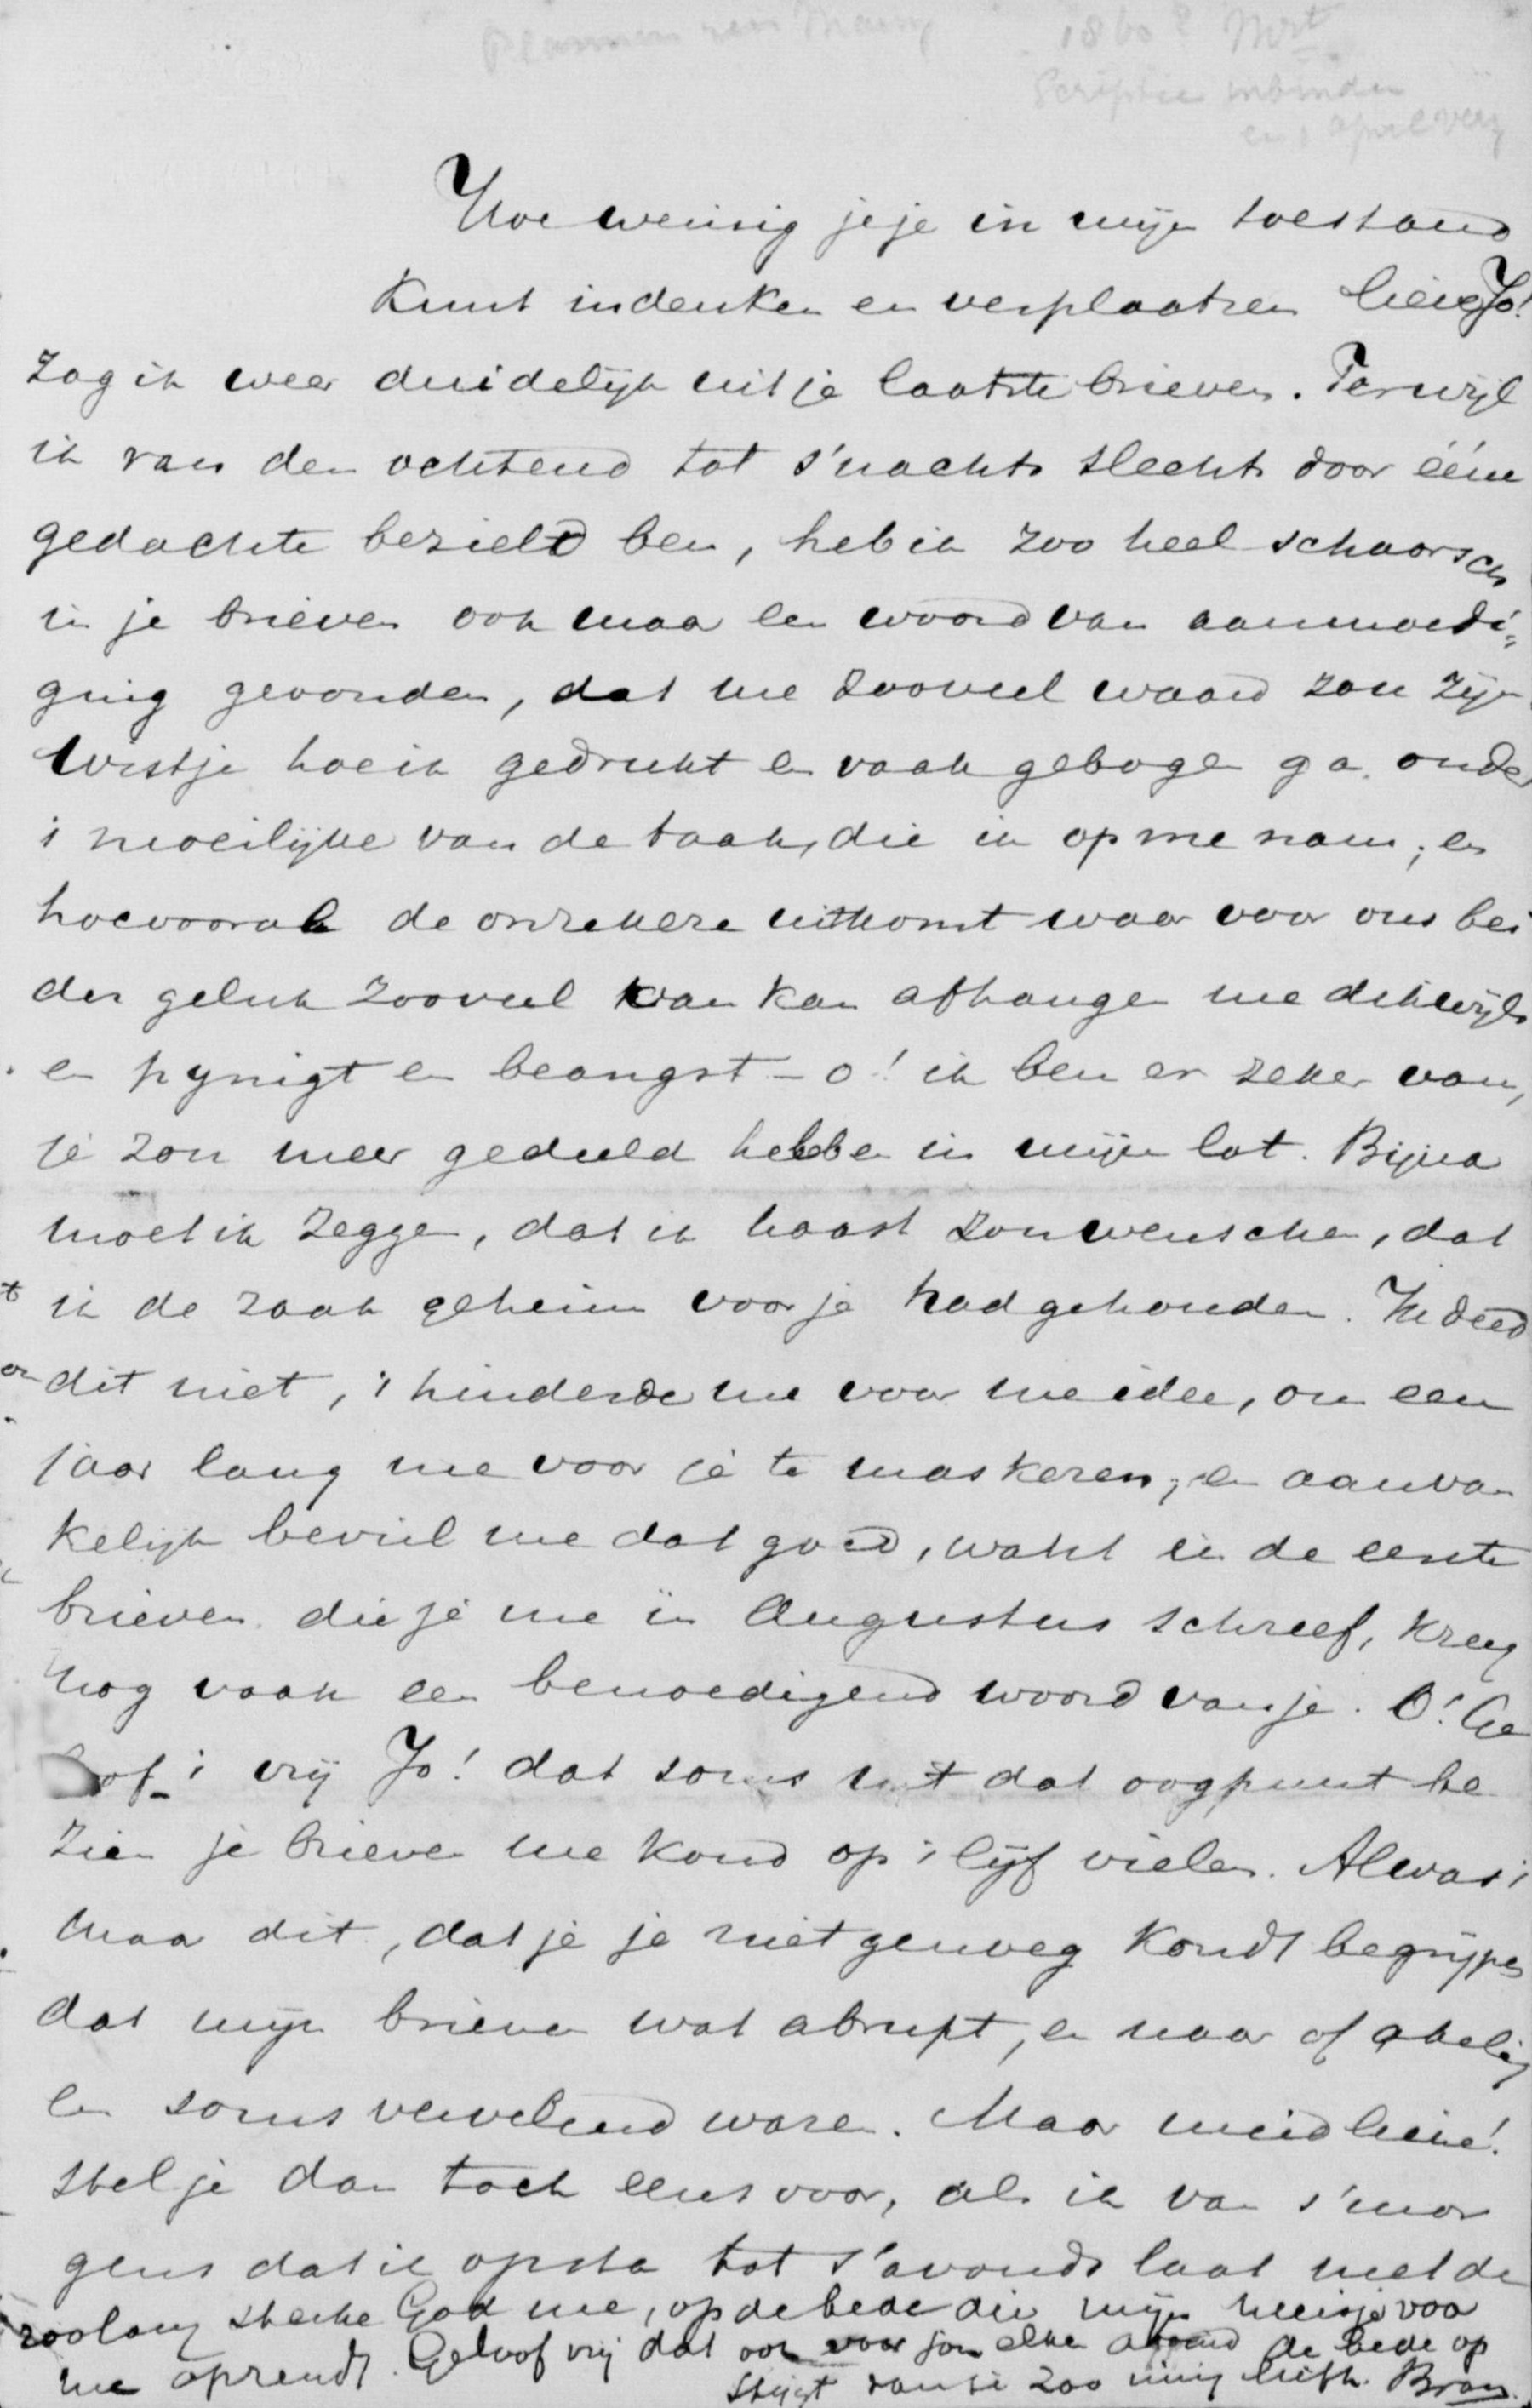 1860 Mrt
Scriptie inbinden
Hoe weinig je je in mijn toestand
kunt indenken en verplaatsen lieve Jo!
zag ik weer duidelijk uit je laatste brieven. Terwijl
ik van den ochtend tot s'nachts slechts door ééne
gedachte bezield ben, heb ik zoo heel schaarsch
in je brieven ook maar een woord van aanmoedi-
ging gevonden, dat me zooveel waard zou zijn.
Wist je hoe ik gedrukt en vaak gebogen ga onder
't moeilijke van de taak, die ik op me nam; en
hoe vooral de onzekere uitkomst waar voor ons bei
der geluk zooveel van kan afhangen me dikwijls
en pynigt en beangst – o! ik ben er zeker van,
je zou meer geduld hebben in mijn lot. Bijna
moet ik zeggen, dat ik haast zou wenschen, dat
ik de zaak geheim voor je had gehouden. Ik deed
dit niet, 't hinderde me voor me idee, om een
jaar lang me voor je te maskeren; en aanvan
kelijk beviel me dat goed, want in de eerste
brieven die je me in Augustus schreef, kreeg
nog vaak een bemoedigend woord van je. O! Ge
loof 't vrij Jo! dat soms uit dat oogpunt be
zien je brieven me koud op 't lijf vielen. Al was 't
maar dit, dat je je niet genoeg kondt begrijpen
dat mijn brieven wat abrupt, en naar of akelig
en soms vervelend waren. Maar meid lieve!
stel je dan toch eens voor, als ik van s'mor
gens dat ik opsta tot s'avonds laat met de
zoolang sterke God me, op de bede die mijn meisje voor
me opzendt. Geloof vrij dat ook voor jou elken avond de bede op
stijgt van je zoo innig liefh. Bram.